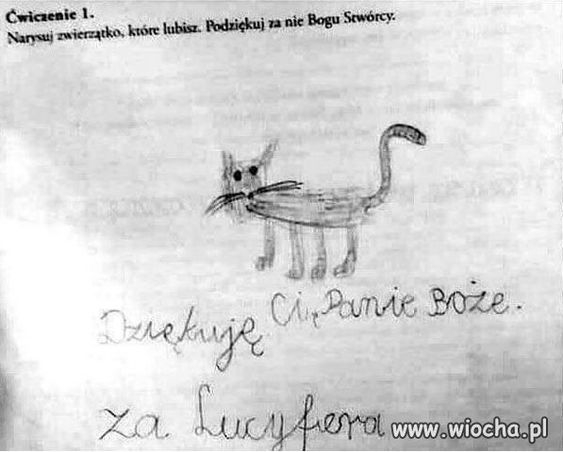 Ćwiczenie 1.
Narysuj zwierzątko, które lubisz. Podziękuj za nie Bogu Stwórcy.
Dziękuję Ci, Panie Boże.
za Lucyfera
www.wiocha.pl